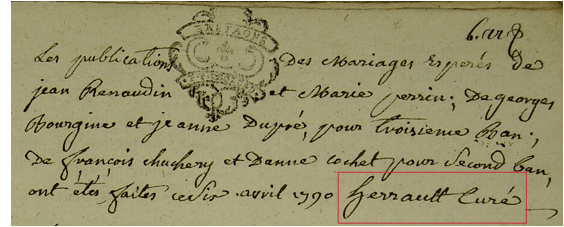 6. avr
BRETAGNE
Les publications Des Mariages Esperés de
jean Renaudin et Marie perrin; De georges
Bourgine et jeanne Dupré, pour troisieme Ban;
De françois chuhery et Danne cochet pour Second ban,
ont étés faites ce dix avril 1790 herrault Curé